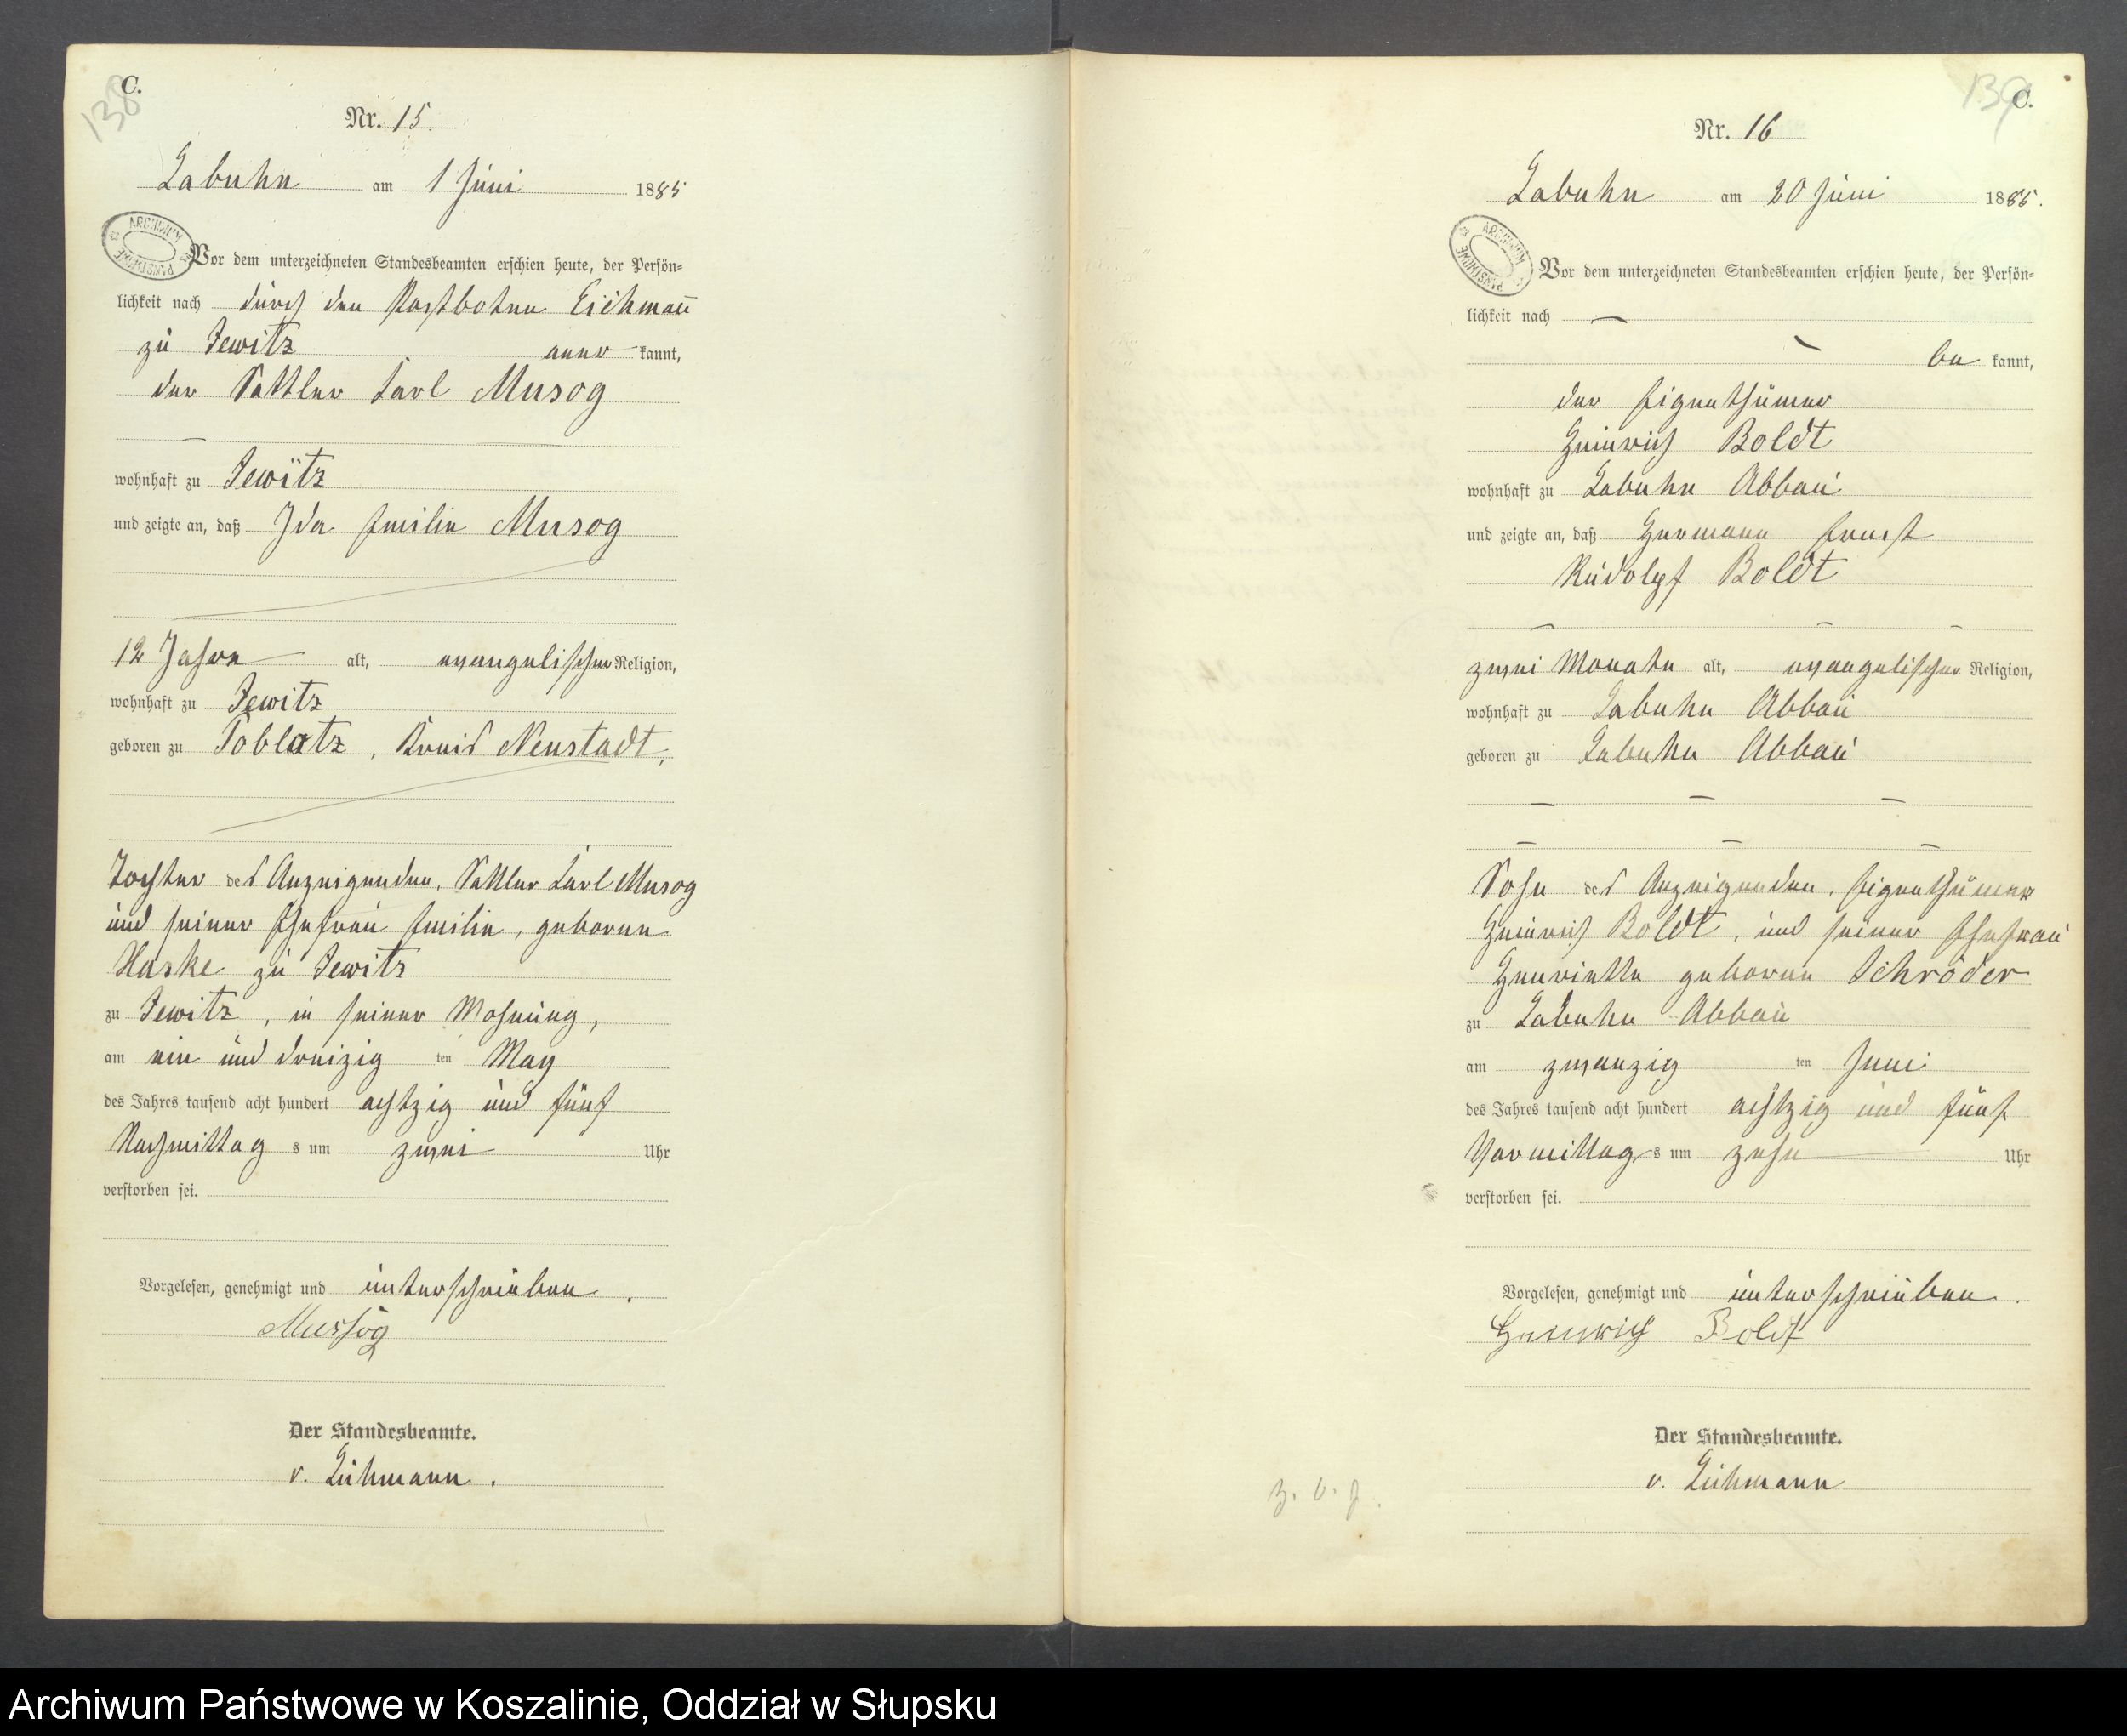 138
C.
Nr. 15.
Labuhn am 1 Juni 1885
ARCHIWUM PAŃSTWOWE
Vor dem unterzeichneten Standesbeamten erschien heute, der Persön-
lichkeit nach durch den Postboten Eichmann
zu Jewitz aner kannt,
der Sattler Carl Musog
wohnhaft zu Jewitz
und zeigte an, daß Ida Emilie Musog
12 Jahre alt, evangelischer Religion,
wohnhaft zu Jewitz
geboren zu Toblatz, Kreis Neustadt,
Tochter des Anzeigenden, Sattler Carl Musog
und seiner Ehefrau Emilie, geborene
Haske zu Jewitz
zu Jewitz, in seiner Wohnung,
am ein und dreizig ten May
des Jahres tausend acht hundert achtzig und fünf
Nachmittag s um zwei Uhr
verstorben sei.
Vorgelesen, genehmigt und unterschrieben.
Mussog
Der Standesbeamte.
v. Lühmann.
139
C.
Nr. 16
Labuhn am 20 Juni 1885.
ARCHIWUM PAŃSTWOWE
Vor dem unterzeichneten Standesbeamten erschien heute, der Persön-
lichkeit nach —
be kannt,
der Eigenthümer
Heinrich Boldt
wohnhaft zu Labuhn Abbau
und zeigte an, daß Hermann Ernst
Rudolpf Boldt
zwei Monate alt, evangelischer Religion,
wohnhaft zu Labuhn Abbau
geboren zu Labuhn Abbau
Sohn des Anzeigenden, Eigenthümer
Heinrich Boldt, und seiner Ehefrau
Henriette geborene Schröder
zu Labuhn Abbau
am zwanzig ten Juni
des Jahres tausend acht hundert achtzig und fünf
Vormittag s um zehn Uhr
verstorben sei.
Vorgelesen, genehmigt und unterschrieben.
Heinrich Boldt
Der Standesbeamte.
v. Lühmann
Archiwum Państwowe w Koszalinie, Oddział w Słupsku